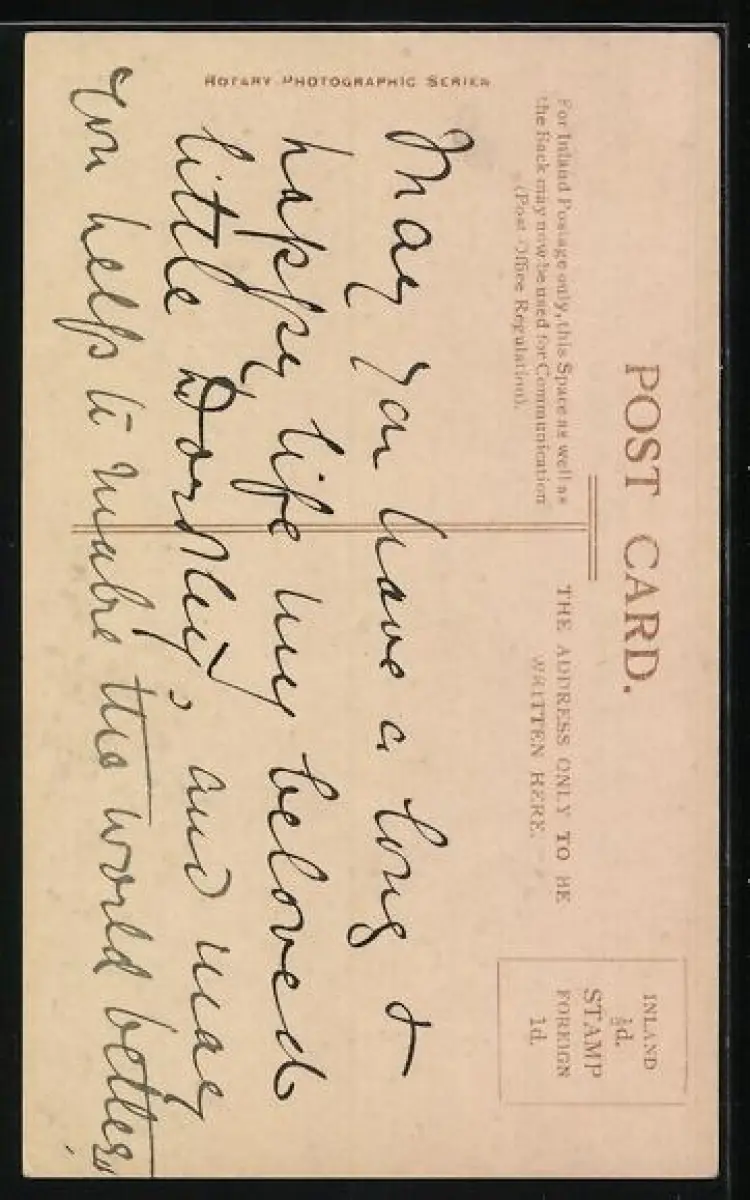 POST CARD.
For Inland Postage only, this Space as well as
the Back may now be used for Communication
(Post Office Regulation).
THE ADDRESS ONLY TO BE
WRITTEN HERE.
INLAND
½d.
STAMP
FOREIGN
1d.
ROTARY PHOTOGRAPHIC SERIES
May you have a long &
happy life my beloved
little Dorothy, and may
you help to make the world better